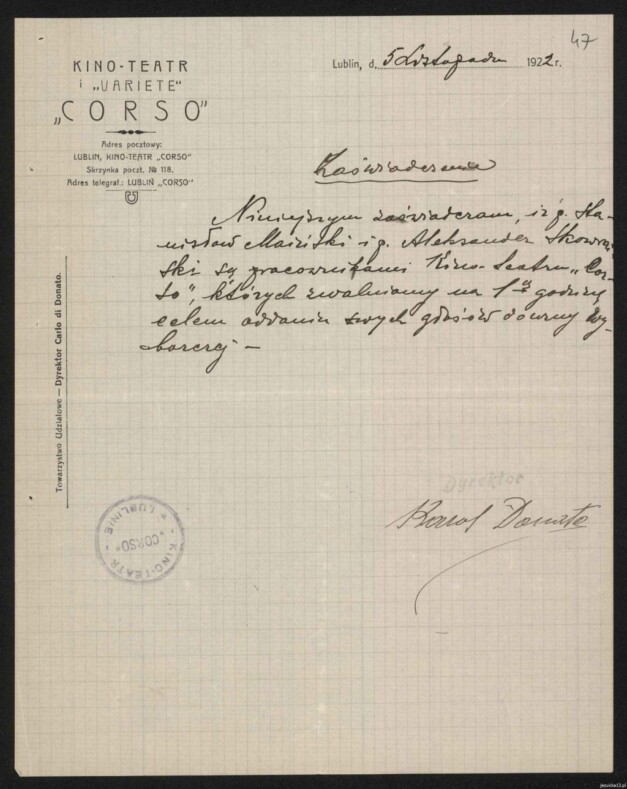 47
KINO-TEATR
i „VARIETE"
„CORSO"
Adres pocztowy:
LUBLIN, KINO-TEATR „CORSO"
Skrzynka poczt. № 118.
Adres telegraf.: LUBLIN „CORSO"
Lublin, d. 5 Listopada 1922 r.
Zaświadczenie
Niniejszym zaświadczam, iż p. Sta-
nisław Maiński i p. Aleksander Skowroń-
ski są pracownikami Kino-teatru „Cor-
so", których zwalniamy na 1ą godzinę
celem oddania swych głosów do urny wy-
borczej –
Towarzystwo Udziałowe — Dyrektor Carlo di Donato.
Dyrektor
Karol Donato
KINO-TEATR
"CORSO"
W LUBLINIE
jesuslex13.pl